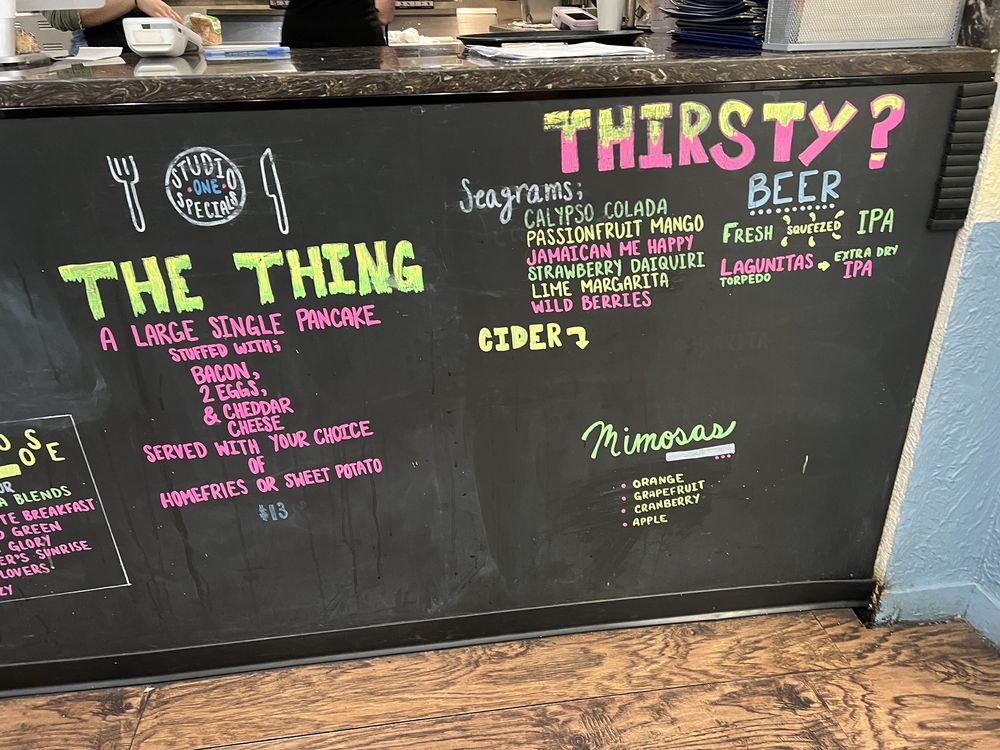 STUDIO
ONE
SPECIALS
THE THING
A LARGE SINGLE PANCAKE
STUFFED WITH;
BACON,
2 EGGS,
& CHEDDAR
CHEESE
SERVED WITH YOUR CHOICE
OF
HOMEFRIES OR SWEET POTATO
$13
OSE
BLENDS
BREAKFAST
GREEN
GLORY
SUNRISE
LOVERS!
THIRSTY?
Seagrams;
CALYPSO COLADA
PASSIONFRUIT MANGO
JAMAICAN ME HAPPY
STRAWBERRY DAIQUIRI
LIME MARGARITA
WILD BERRIES
CIDER
BEER
FRESH SQUEEZED IPA
LAGUNITAS EXTRA DRY
TORPEDO IPA
Mimosas
ORANGE
GRAPEFRUIT
CRANBERRY
APPLE